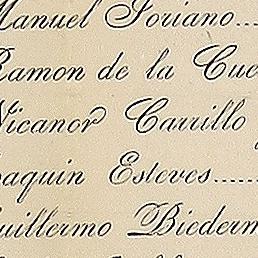 Manuel Soriano...
Ramon de la Cue
Nicanor Carrillo y
oaquin Esteves.....
uillermo Biederm